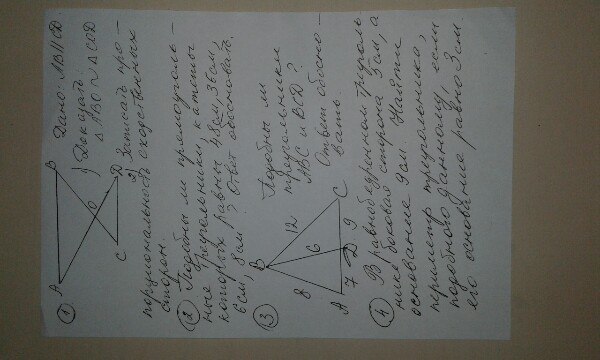 1
A
B
O
C
D
Дано: AB || CD.
1) Доказать
△ABO ∾ △COD
2) Записать про-
порциональность сходственных
сторон.
2 Подобны ли прямоуголь-
ные треугольники, катеты
которых равны 48см, 36см,
6см, 8см? Ответ обосновать.
3
B
8
12
6
A
7
D
9
C
Подобны ли
треугольники
ABC и BCD?
Ответ обосно-
вать.
4 В равнобедренном треуголь-
нике боковая сторона см, а
основание 9см. Найти
периметр треугольника,
подобного данному, если
его основание равно 3см.